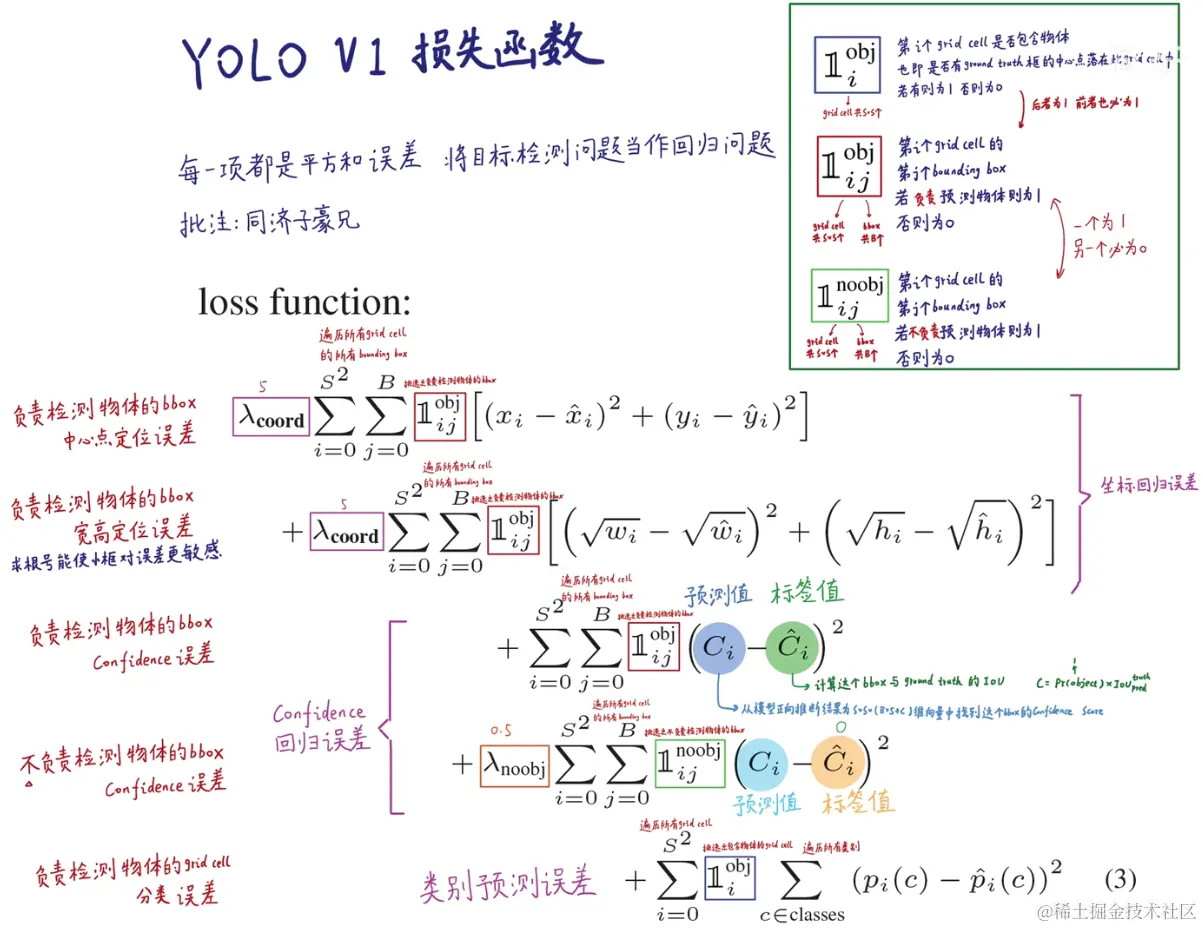 YOLO V1 损失函数
每一项都是平方和误差 将目标检测问题当作回归问题
批注:同济子豪兄
𝟙 obj i
grid cell 共S*S个
第i个grid cell是否包含物体
也即是否有ground truth框的中心点落在此grid cell中
若有则为1 否则为0
后者为1 前者也必为1
𝟙 obj ij
grid cell 共S*S个
bbox 共B个
第i个grid cell的
第j个bounding box
若负责预测物体则为1
否则为0
一个为1
另一个必为0
𝟙 noobj ij
grid cell 共S*S个
bbox 共B个
第i个grid cell的
第j个bounding box
若不负责预测物体则为1
否则为0
loss function:
遍历所有grid cell
的所有bounding box
挑选出负责检测物体的bbox
负责检测物体的bbox
中心点定位误差
5
λcoord ∑_{i=0}^{S^2} ∑_{j=0}^{B} 𝟙_{ij}^{obj} [(x_i − x̂_i)^2 + (y_i − ŷ_i)^2]
遍历所有grid cell
的所有bounding box
挑选出负责检测物体的bbox
负责检测物体的bbox
宽高定位误差
求根号能使小框对误差更敏感
5
+ λcoord ∑_{i=0}^{S^2} ∑_{j=0}^{B} 𝟙_{ij}^{obj} [(√w_i − √ŵ_i)^2 + (√h_i − √ĥ_i)^2]
坐标回归误差
遍历所有grid cell
的所有bounding box
挑选出负责检测物体的bbox
预测值 标签值
负责检测物体的bbox
Confidence 误差
+ ∑_{i=0}^{S^2} ∑_{j=0}^{B} 𝟙_{ij}^{obj} (C_i − Ĉ_i)^2
计算这个bbox与ground truth的IOU
1
C = Pr(object) * IOU truth pred
从模型正向推断结果为S*S*(B*5+C)维向量中找到这个bbox的Confidence Score
Confidence
回归误差
遍历所有grid cell
的所有bounding box
挑选出不负责检测物体的bbox
不负责检测物体的bbox
Confidence 误差
0.5
0
+ λnoobj ∑_{i=0}^{S^2} ∑_{j=0}^{B} 𝟙_{ij}^{noobj} (C_i − Ĉ_i)^2
预测值 标签值
遍历所有grid cell
挑选出包含物体的grid cell
遍历所有类别
负责检测物体的grid cell
分类误差
类别预测误差
+ ∑_{i=0}^{S^2} 𝟙_i^{obj} ∑_{c∈classes} (p_i(c) − p̂_i(c))^2 (3)
@稀土掘金技术社区